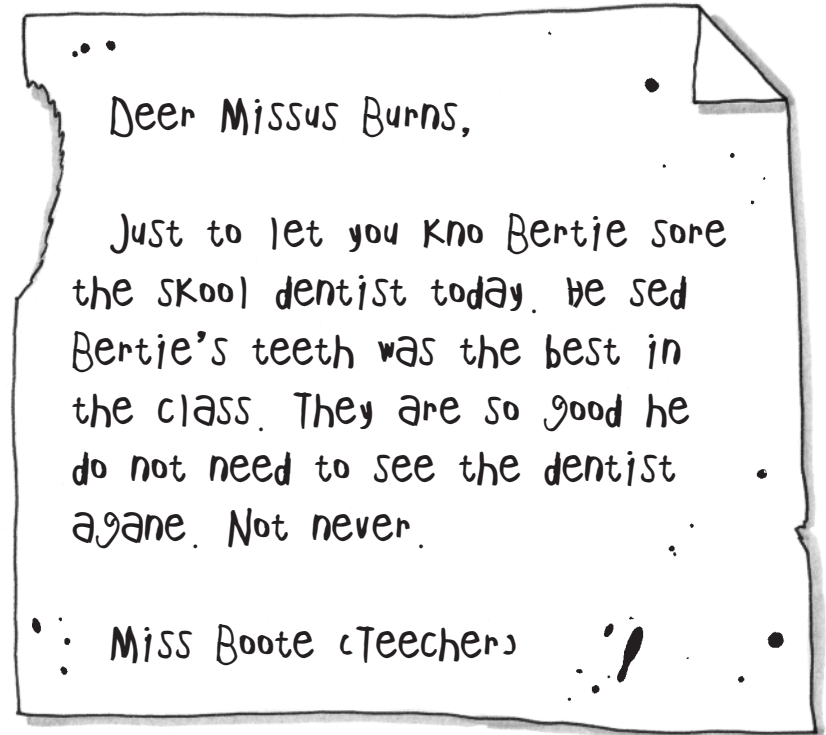 Deer Missus Burns,
Just to let you kno Bertie sore
the skool dentist today. He sed
Bertie's teeth was the best in
the class. They are so good he
do not need to see the dentist
agane. Not never.
Miss Boote (Teecher)